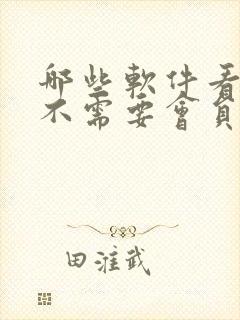 哪些軟件看
不需要會員
田淮武